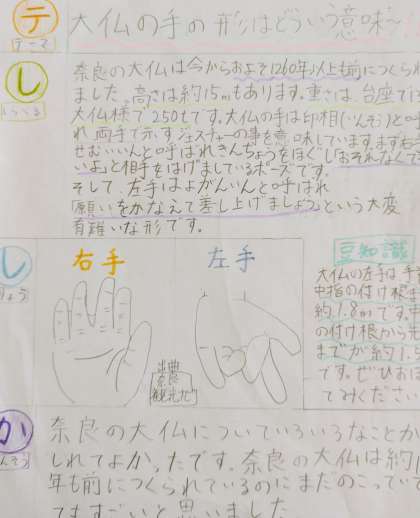 テ
テーマ
大仏の手の形はどういう意味〜
し
奈良の大仏は今からおよそ1260年以上も前につくら
ました。高さは約15mもあります。重さは、台座で13
大仏様で250tです。大仏の手は印相(いんそう)と呼
れ、両手で示すジェスチャーの事を意味しています。まず右手
せむいいんと呼ばれきんちょうをほぐし「おそれなくて
いよ」と相手をはげましているポーズです。
そして、左手はよがんいんと呼ばれ
「願いをかなえて差し上げましょう」という大変
有難いな形です。
し
りょう
右手
左手
出典
奈良
観光ナビ
豆知識
大仏の左手は手首
中指の付け根ま
約1.8mです。中
の付け根から先
までが約1.
です。ぜひおぼ
てみください
か
んそう
奈良の大仏についていろいろなことか
しれてよかったです。奈良の大仏は約1
年も前につくられているのにまだのこってい
てますごいと思いました